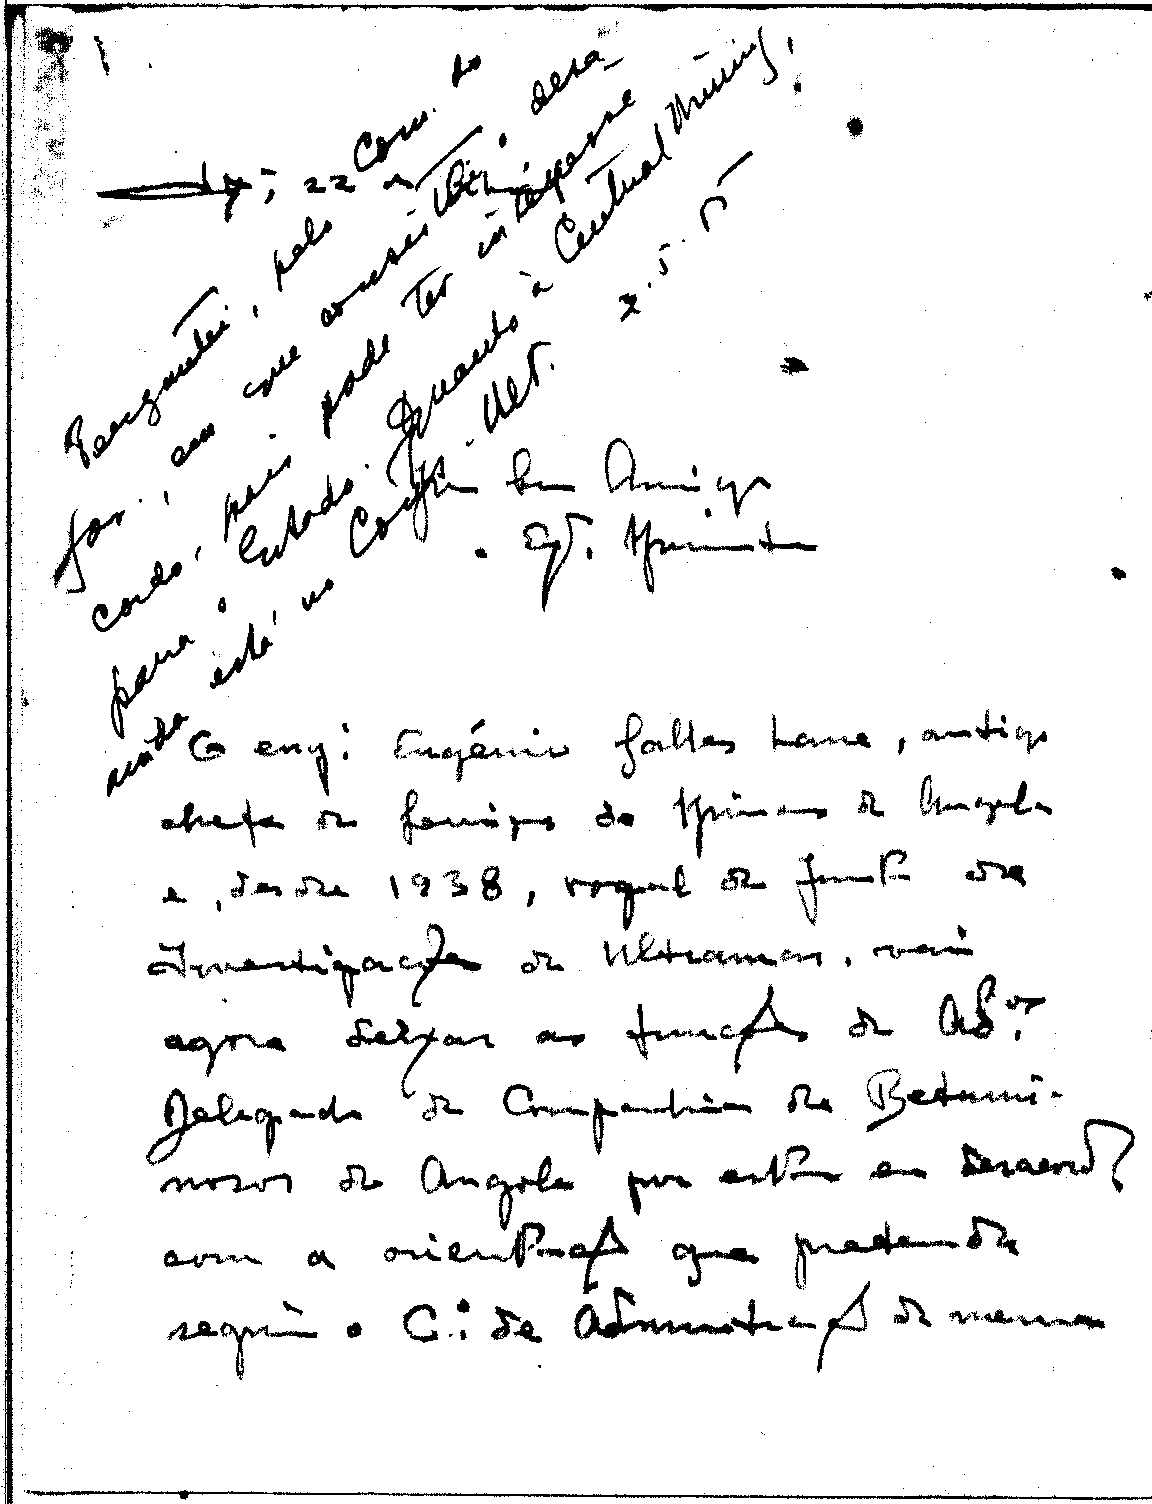 Perguntei, pelo
fone, em que consistia o desa-
cordo, pois pode ter interesse
para o Estado. Quanto à Central Mining,
nada está no Cofre. Ult. 2.5.55
Meu bom Amigo
Exmo. Ministro
O eng: Eugénio Salles Lane, antigo
chefe de Serviços de Minas de Angola
e, desde 1938, vogal da Junta de
Investigações do Ultramar, vai
agora deixar as funções de Ad.or
Delegado da Companhia de Betumi-
nosos de Angola por estar em desacordo
com a orientação que pretende
seguir o C.: de Administração da mesma